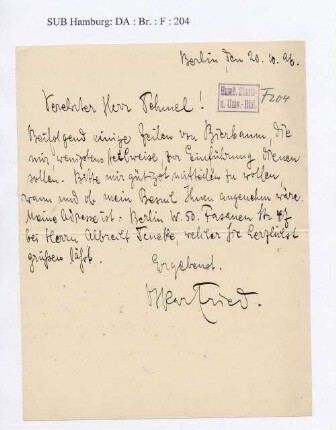 SUB Hamburg: DA : Br. : F : 204
Berlin den 20.10.96.
Hamb. Staats-
u. Univ.-Bibl.
F204
Verehrter Herr Dehmel!
Beifolgend einige Zeilen von Bierbaum, die
mir wenigstens teilweise zur Einführung dienen
sollen. Bitte mir gütigst mitteilen zu wollen
wann und ob mein Besuch Ihnen angenehm wäre.
Meine Adresse ist: Berlin W. 50. Fasanen Str.
bei Herrn Albrecht welcher Sie herzlichst
grüßen läßt.
Ergebenst.
Oskar Fried.